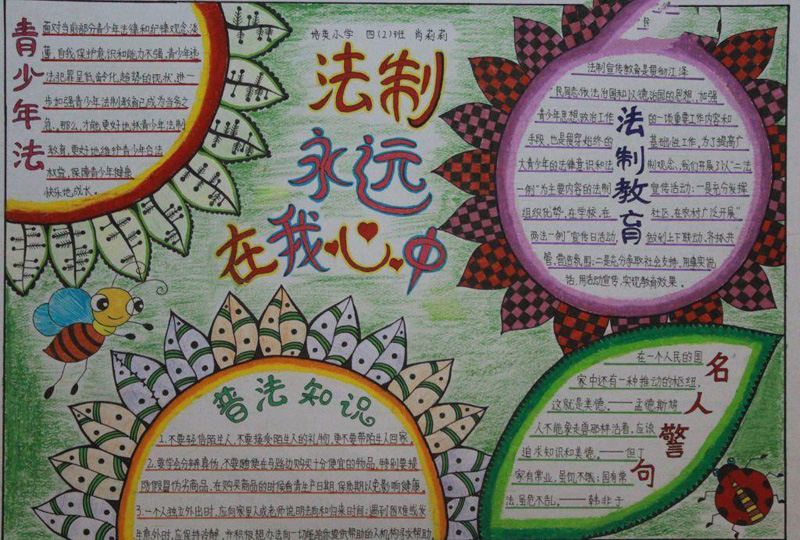 青少年法
面对当前部分青少年法律和纪律观念淡
薄，自我保护意识和能力不强，青少年违
法犯罪呈低龄化趋势的现状，进一
步加强青少年法制教育已成为当务之
急，那么，才能更好地把青少年法制
教育，更好地维护青少年合法
权益，保障青少年健康
快乐地成长。
培英小学 四(2)班 肖莉莉
法制
永远
在我心中
法制教育
法制宣传教育是贯彻江泽
民同志依法治国和以德治国的思想，加强
青少年思想政治工作的一项重要工作内容和
手段，也是最容始终的基础性工作，为了提高广
大青少年的法律意识和法制观念，我们开展了以“二法
一例”为主要内容的法制宣传活动：一是充分发挥
组织优势，在学校，在社区，在农村广泛开展“
两法一例”宣传日活动，做到上下联动，齐抓共
管，营造氛围；二是充分争取社会支持，用事实说
话，用活动宣传，实现教育效果。
普法知识
1.不要轻信陌生人，不要接受陌生人的礼物，更不要带陌生人回家。
2.要学会分辨真伪，不要随便在马路边购买十分便宜的物品，特别要提
防假冒伪劣商品，在购买商品的时候看清生产日期，保质期以免影响健康。
3.一个人独立外出时，应向家里人或老师说明去向和归来时间；遇到困难或发
生意外时，应保持冷静，并积极想办法向一切能给你提供帮助的人机构寻求帮助。
名人警句
在一个人民的国
家中还有一种推动的枢纽，
这就是美德。——孟德斯鸠
人不能象走兽那样活着，应该
追求知识和美德。——但丁
家有常业，虽饥不饿；国有常
法，虽危不乱。——韩非子